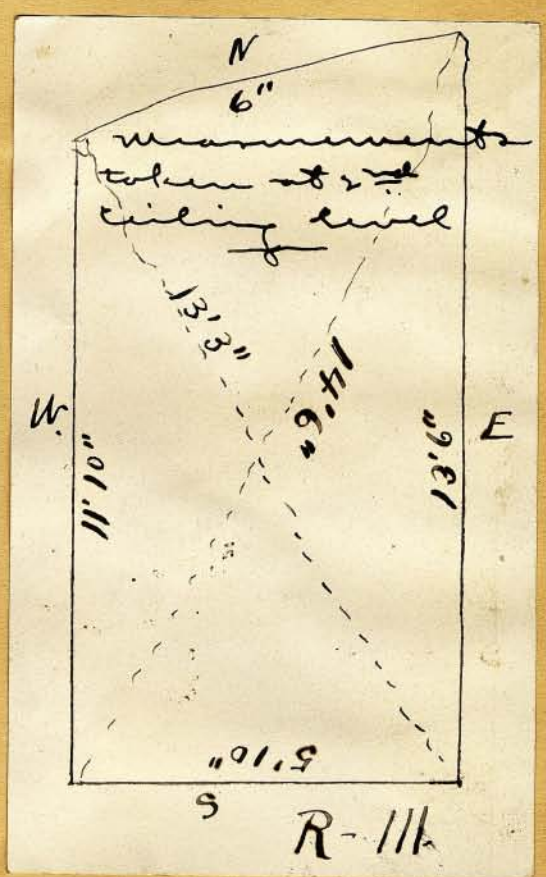 N
6"
measurements
taken at 2nd
ceiling level
13'3"
14'6"
W.
11'10"
E
13'6"
5'10"
S
R-111